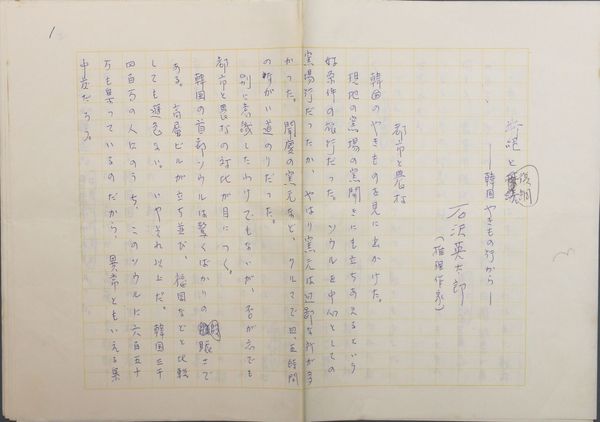 1
と
――韓国やきもの行から――
石沢英太郎
(推理作家)
都市と農村
韓国のやきものを見に出かけた。
現地の窯場の窯開きにも立ちあえるという
好条件の旅行だった。ソウルを中心としての
窯場行だったが、やはり窯元は辺鄙な所が多
かった。聞慶の窯元など、クルマで四、五時間
の道のりだった。
別に意識したわけでもないが、否が応でも
都市と農村の対比が目につく。
韓国の首都ソウルは驚くばかりの賑さで
ある。高層ビルが立ち並び、福岡などと比較
しても遜色ない。いやそれ以上だ。韓国三千
四百万の人口のうち、このソウルに六百五十
万も集っているのだから、異常ともいえる集
中度だろう。